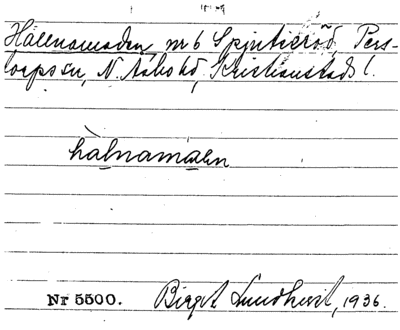 Hällnamaden nr 6 Spjutseröd, Pers-
torps sn, N. Åsbo hd, Kristianstads l.
hàlnamán
Nr 5500. Birgit Lundqvist, 1936.